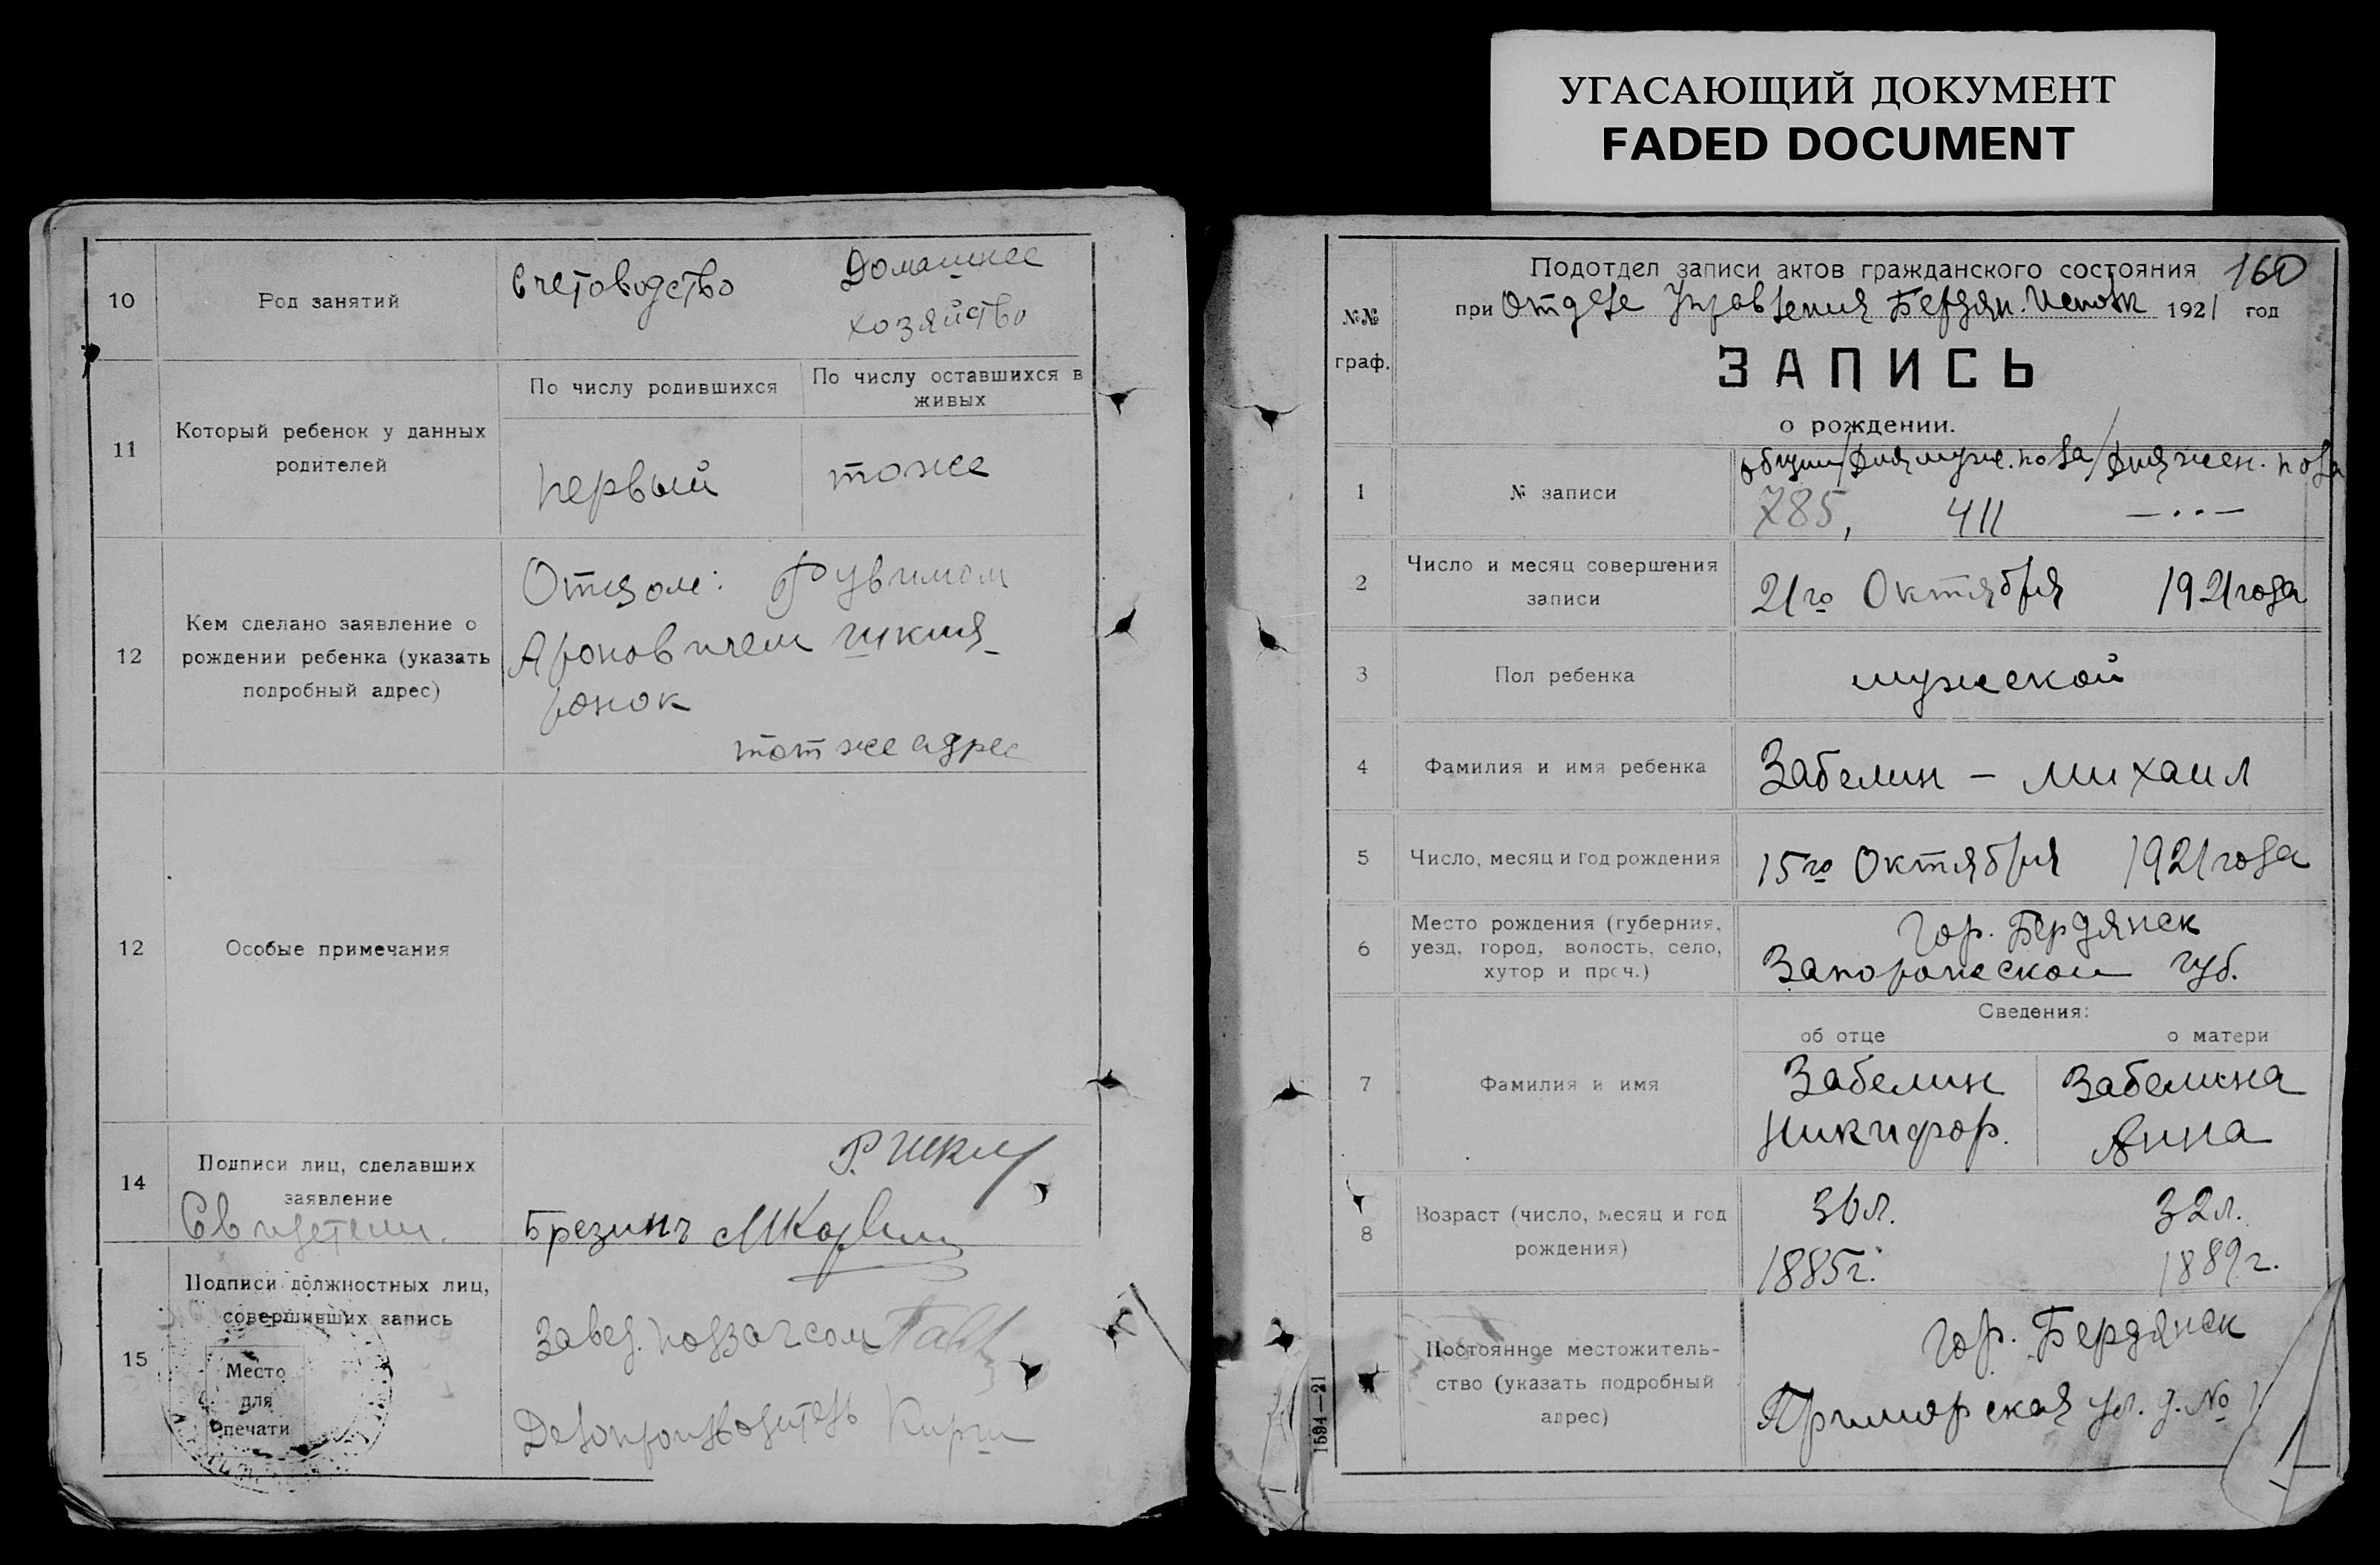 УГАСАЮЩИЙ ДОКУМЕНТ
FADED DOCUMENT
10
Род занятий
Счетоводство
Домашнее
хозяйство
11
Который ребенок у данных
родителей
По числу родившихся
По числу оставшихся в
живых
первый
тоже
12
Кем сделано заявление о
рождении ребенка (указать
подробный адрес)
Отцом: Рувимом
Ароновичем
тот же адрес
12
Особые примечания
14
Подписи лиц, сделавших
заявление
Свидетели.
Брезинъ
15
Подписи должностных лиц,
совершивших запись
Место
для
печати
Завед. подзагсом
Делопроизводитель
№№
граф.
Подотдел записи актов гражданского состояния
160
при Отделе Управления Бердян. Исполк 1921 год
ЗАПИСЬ
о рождении.
1
№ записи
общий/для муж. пола/для жен. пола
785, 411 —··—
2
Число и месяц совершения
записи
21го Октября 1921 года
3
Пол ребенка
мужской
4
Фамилия и имя ребенка
Забелин — Михаил
5
Число, месяц и год рождения
15го Октября 1921 года
6
Место рождения (губерния,
уезд, город, волость, село,
хутор и проч.)
Гор. Бердянск
Запорожской губ.
Сведения:
об отце
о матери
7
Фамилия и имя
Забелин
Никифор.
Забелина
Анна
8
Возраст (число, месяц и год
рождения)
36 л.
1885 г.
32 л.
1889 г.
Постоянное местожитель-
ство (указать подробный
адрес)
Гор. Бердянск
Приморская ул. д. №
1594—21